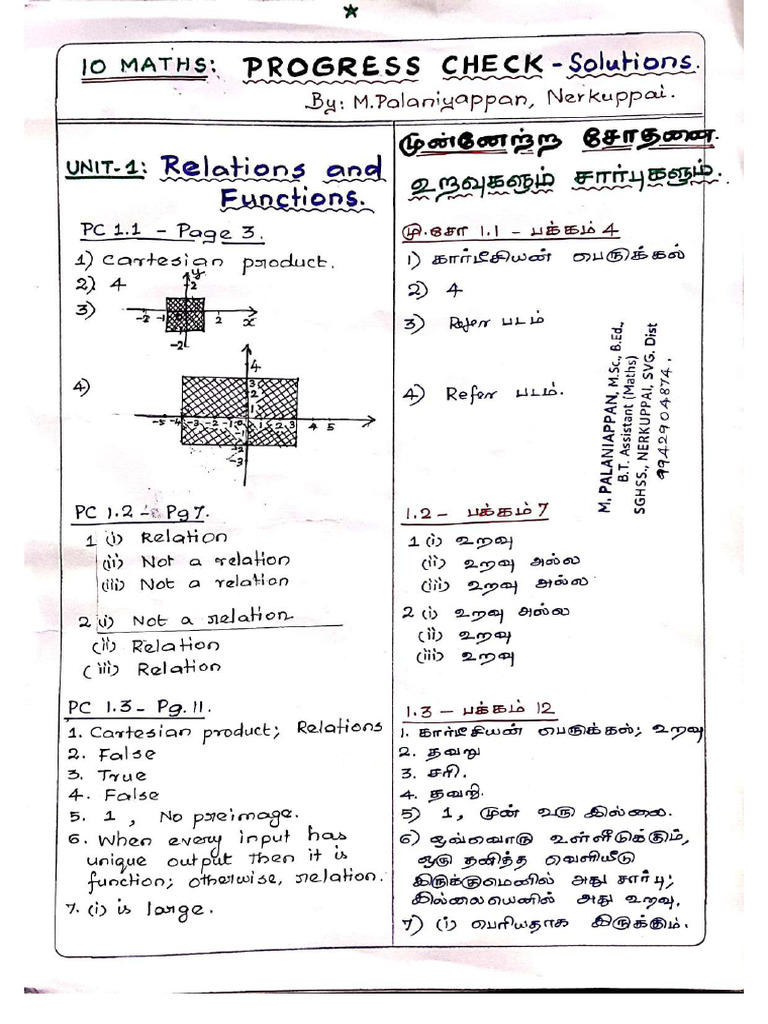 10 MATHS: PROGRESS CHECK - Solutions.
By: M.Palaniyappan, Nerkuppai.
UNIT-1: Relations and
Functions.
PC 1.1 - Page 3.
1) Cartesian product.
2) 4
3)
y
2
-2 -1 2 x
-2
4)
4
3
2
1
-5 -4 -3 -2 -1 0 1 2 3 4 5
-1
-2
-3
PC 1.2 - Pg 7.
1 (i) Relation
(ii) Not a relation
(iii) Not a relation
2 (i) Not a relation
(ii) Relation
(iii) Relation
PC 1.3 - Pg. 11.
1. Cartesian product; Relations
2. False
3. True
4. False
5. 1 , No preimage.
6. When every input has
unique output then it is
function; otherwise, relation.
7. (i) is large.
முன்னேற்ற சோதனை.
உறவுகளும் சார்புகளும்.
மு.சோ 1.1 - பக்கம் 4
1) கார்டீசியன் பெருக்கல்
2) 4
3) Refer படம்
4) Refer படம்.
M. PALANIAPPAN, M.Sc., B.Ed.,
B.T. Assistant (Maths)
SGHSS., NERKUPPAI, SVG. Dist
9942904874,
1.2 - பக்கம் 7
1 (i) உறவு
(ii) உறவு அல்ல
(iii) உறவு அல்ல
2 (i) உறவு அல்ல
(ii) உறவு
(iii) உறவு
1.3 - பக்கம் 12
1. கார்டீசியன் பெருக்கல்; உறவு
2. தவறு
3. சரி.
4. தவறு.
5) 1, முன் உரு இல்லை.
6) ஒவ்வொரு உள்ளீடுக்கும்,
ஒரு தனித்த வெளியீடு
இருக்குமெனில் அது சார்பு;
இல்லையெனில் அது உறவு.
7) (i) பெரியதாக இருக்கும்.